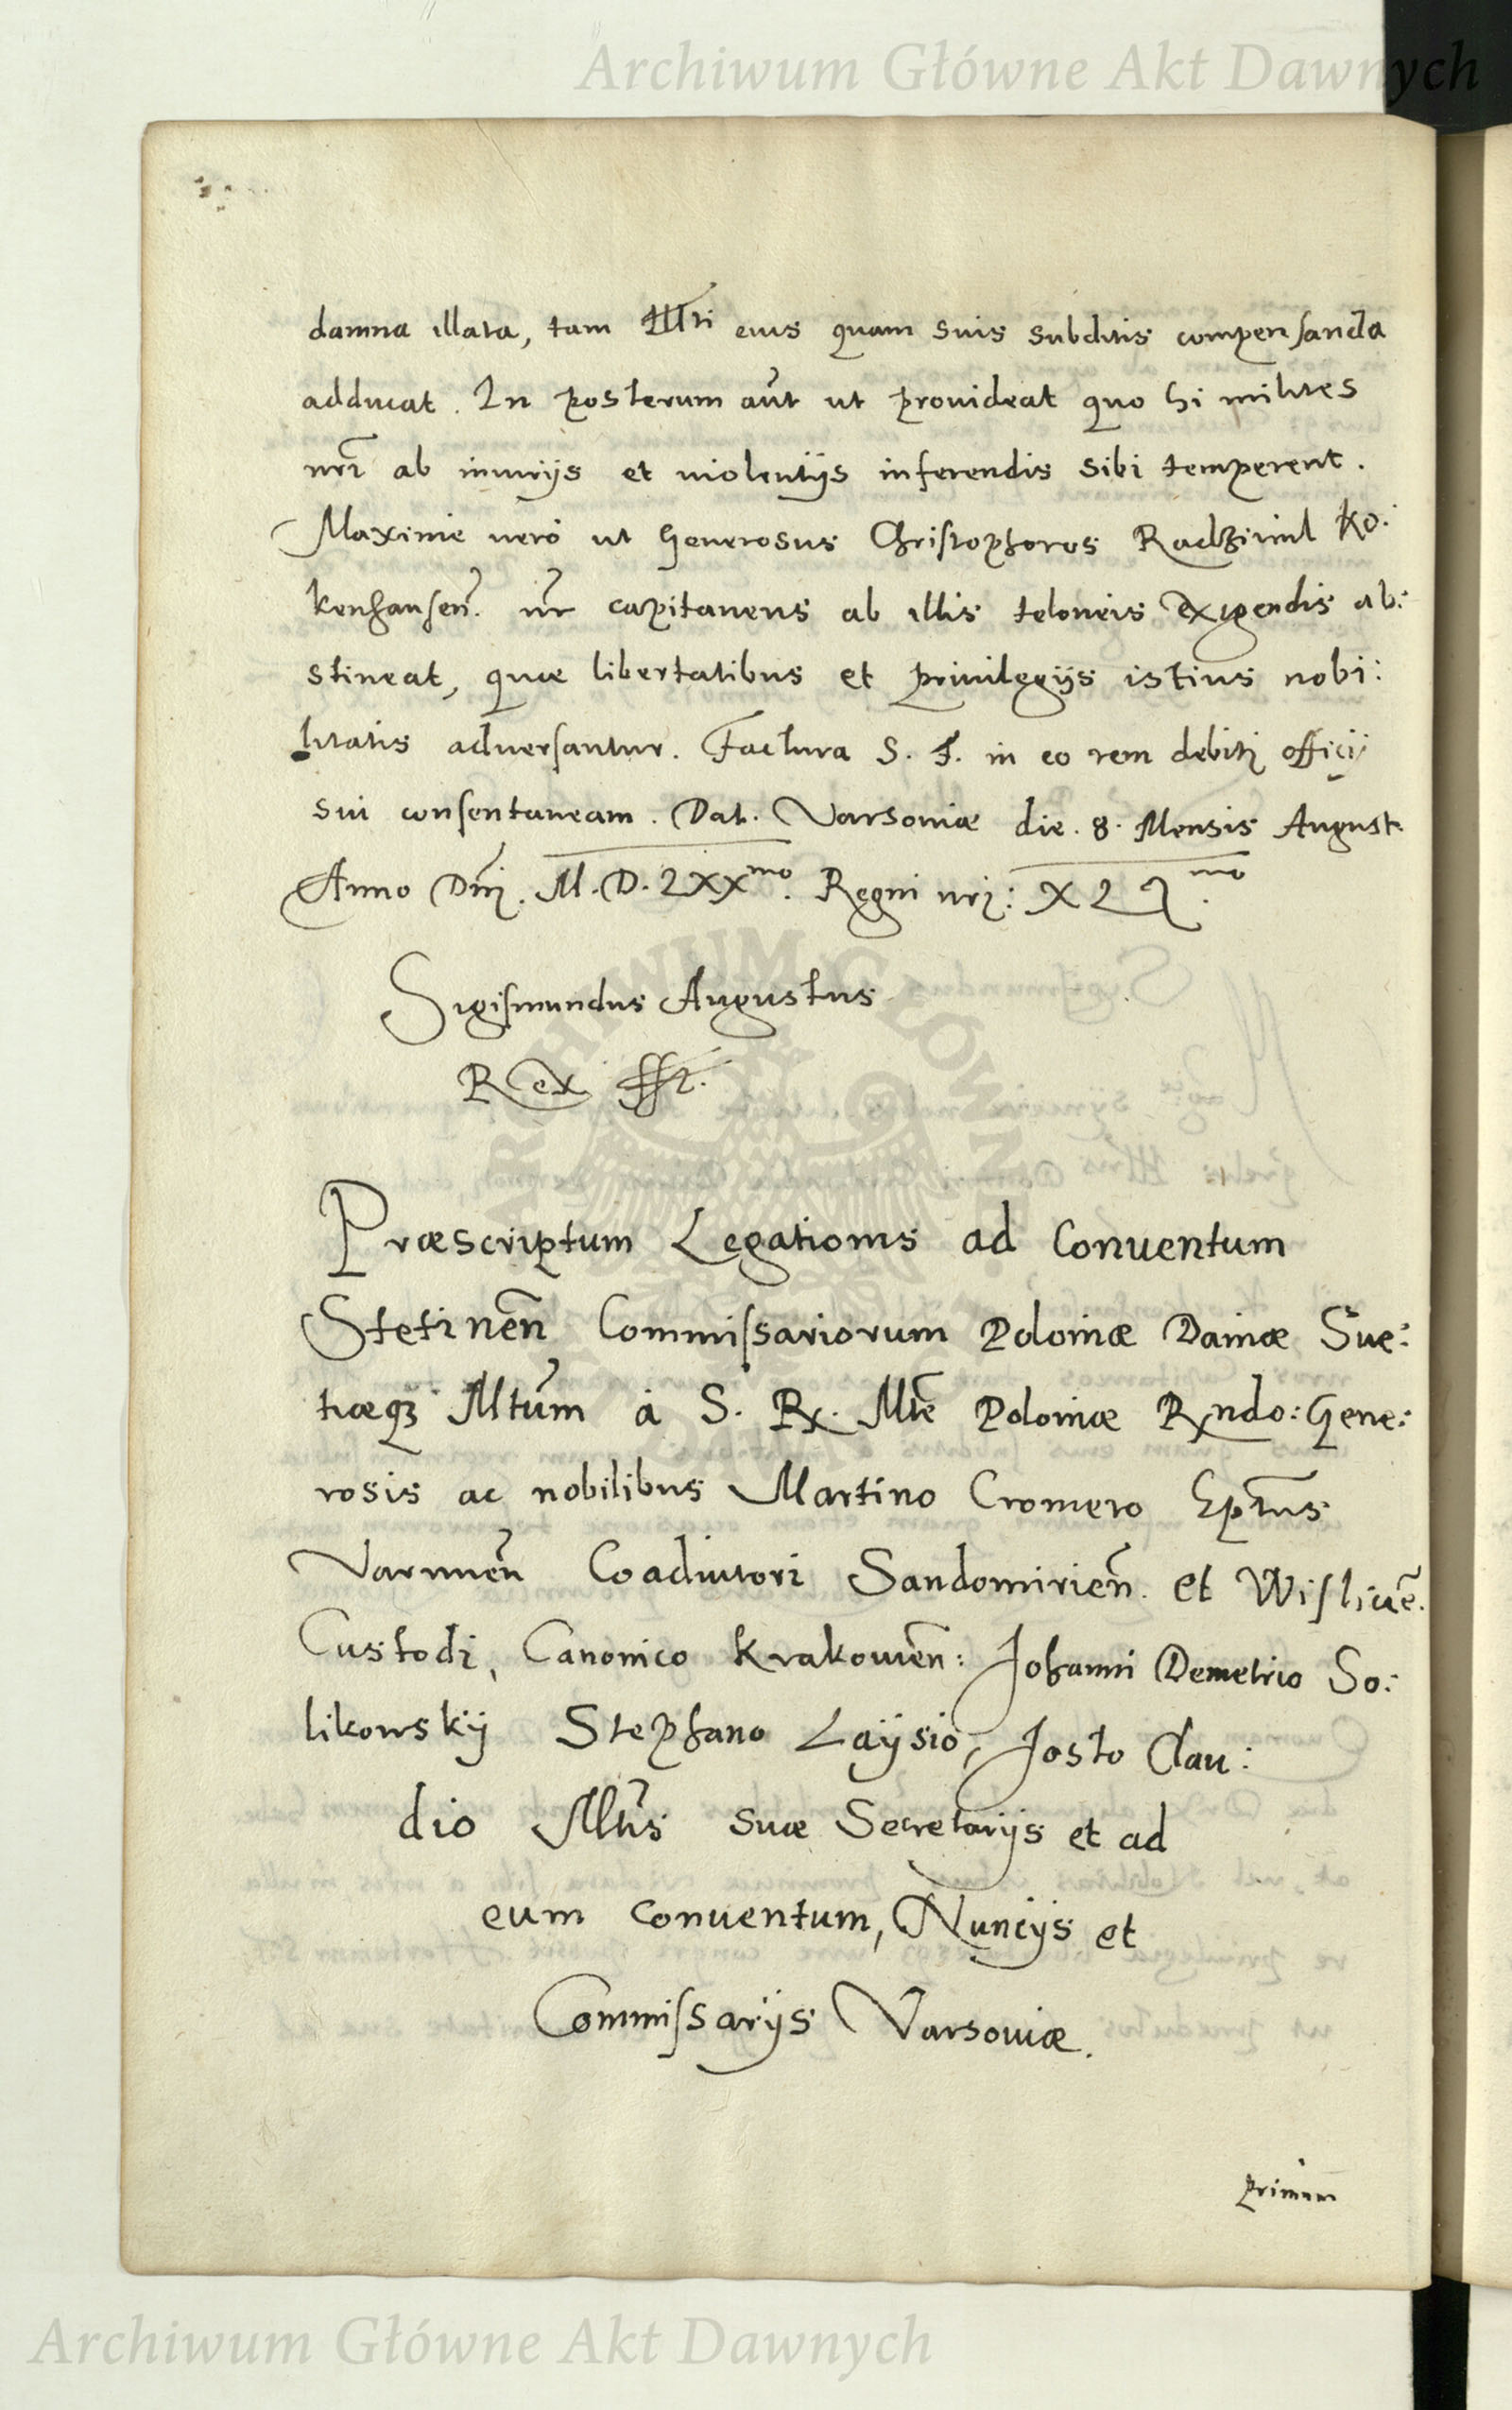 Archiwum Główne Akt Dawnych
damna illata, tam Illri eius quam suis subditis compensanda
adducat. In posterum aut ut prouideat quo hi milites
nri ab iniurijs et uiolentijs inferendis sibi temperent.
Maxime uero ut Generosus Christophorus Radziuiul Ko:
kenhausen. nr capitaneus ab illis teloneis exigendis ab:
stineat, quae libertatibus et priuilegijs istius nobi:
litatis aduersantur. Factura S. F. in eo rem debiti officij
sui consentaneam. Dat. Varsouiæ die. 8. Mensis August.
Anno Dni. M.D.LXX^mo. Regni nri: XLI^mo.
Sigismundus Augustus
Rex sst.
Præscriptum Legationis ad Conuentum
Stetinen Commissariorum Poloniæ Daniæ Sue:
tiæq3 Mtum à S. Rx. Mte Poloniæ Rxndo: Gene:
rosis ac nobilibus Martino Cromero Eptus
Varmien Coadiutori Sandomirien. et Wislicie.
Custodi, Canonico Krakouien: Johanni Demetrio So:
likowskij Stephano Laÿsio, Josto Clau:
dio Mtis suæ Secretarijs et ad
eum conuentum, Nuncijs et
Commissarijs Varsouiæ.
primum
ARCHIWUM GŁÓWNE AKT DAWNYCH
Archiwum Główne Akt Dawnych